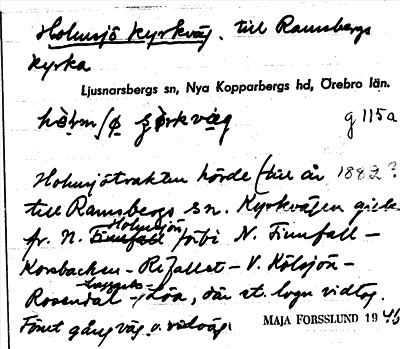 Holmsjö Kyrkväg. till Ramsbergs
kyrka
Ljusnarsbergs sn, Nya Kopparbergs hd, Örebro län.
g 115a
Holmsjötrakten hörde (till år 1882?
till Ramsbergs sn. Kyrkvägen gick
Holmsjön
fr. N. Finnfall förbi N. Finnfall –
Korsbacken – Rifallet – V. Kölsjön –
Rosendal – Löa, där st. logn vidtog.
Förut gångväg o. ridväg.
MAJA FORSSLUND 1946